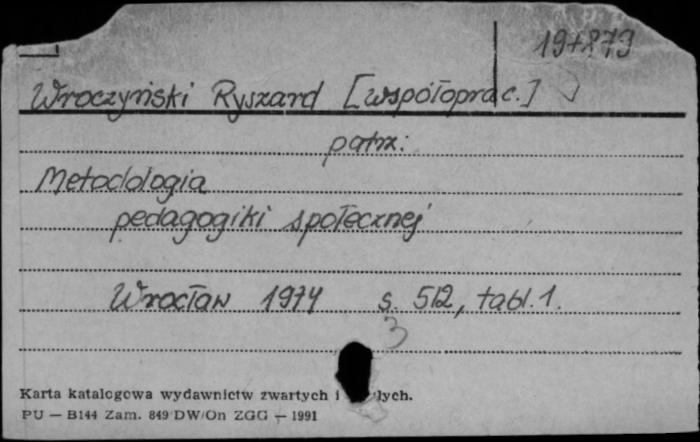 Wroczyński Ryszard [współoprac.]
patrz:
Metodologia
pedagogiki społecznej
Wrocław 1974 s. 512, tabl. 1.
3
Karta katalogowa wydawnictw zwartych i
PU — B144 Zam. 849 DW/On ZGG — 1991